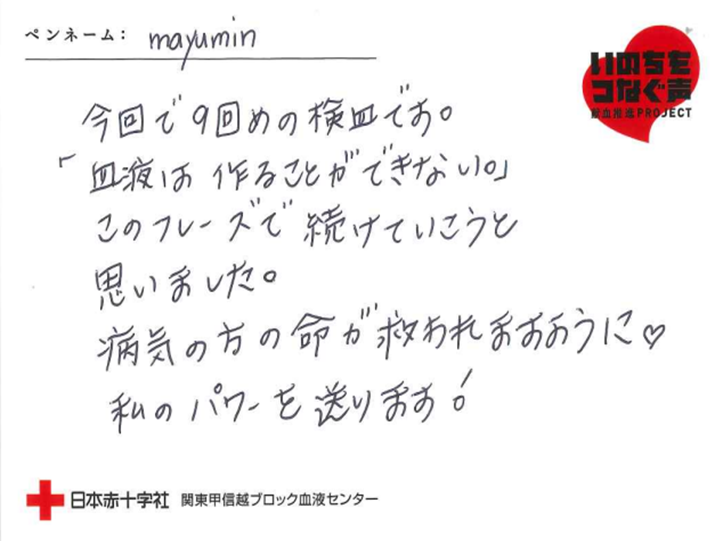 ペンネーム: mayumin
いのちを
つなぐ声
献血推進PROJECT
今回で9回めの検血です。
「血液は作ることができない。」
このフレーズで続けていこうと
思いました。
病気の方の命が救われますように♡
私のパワーを送ります!
日本赤十字社 関東甲信越ブロック血液センター